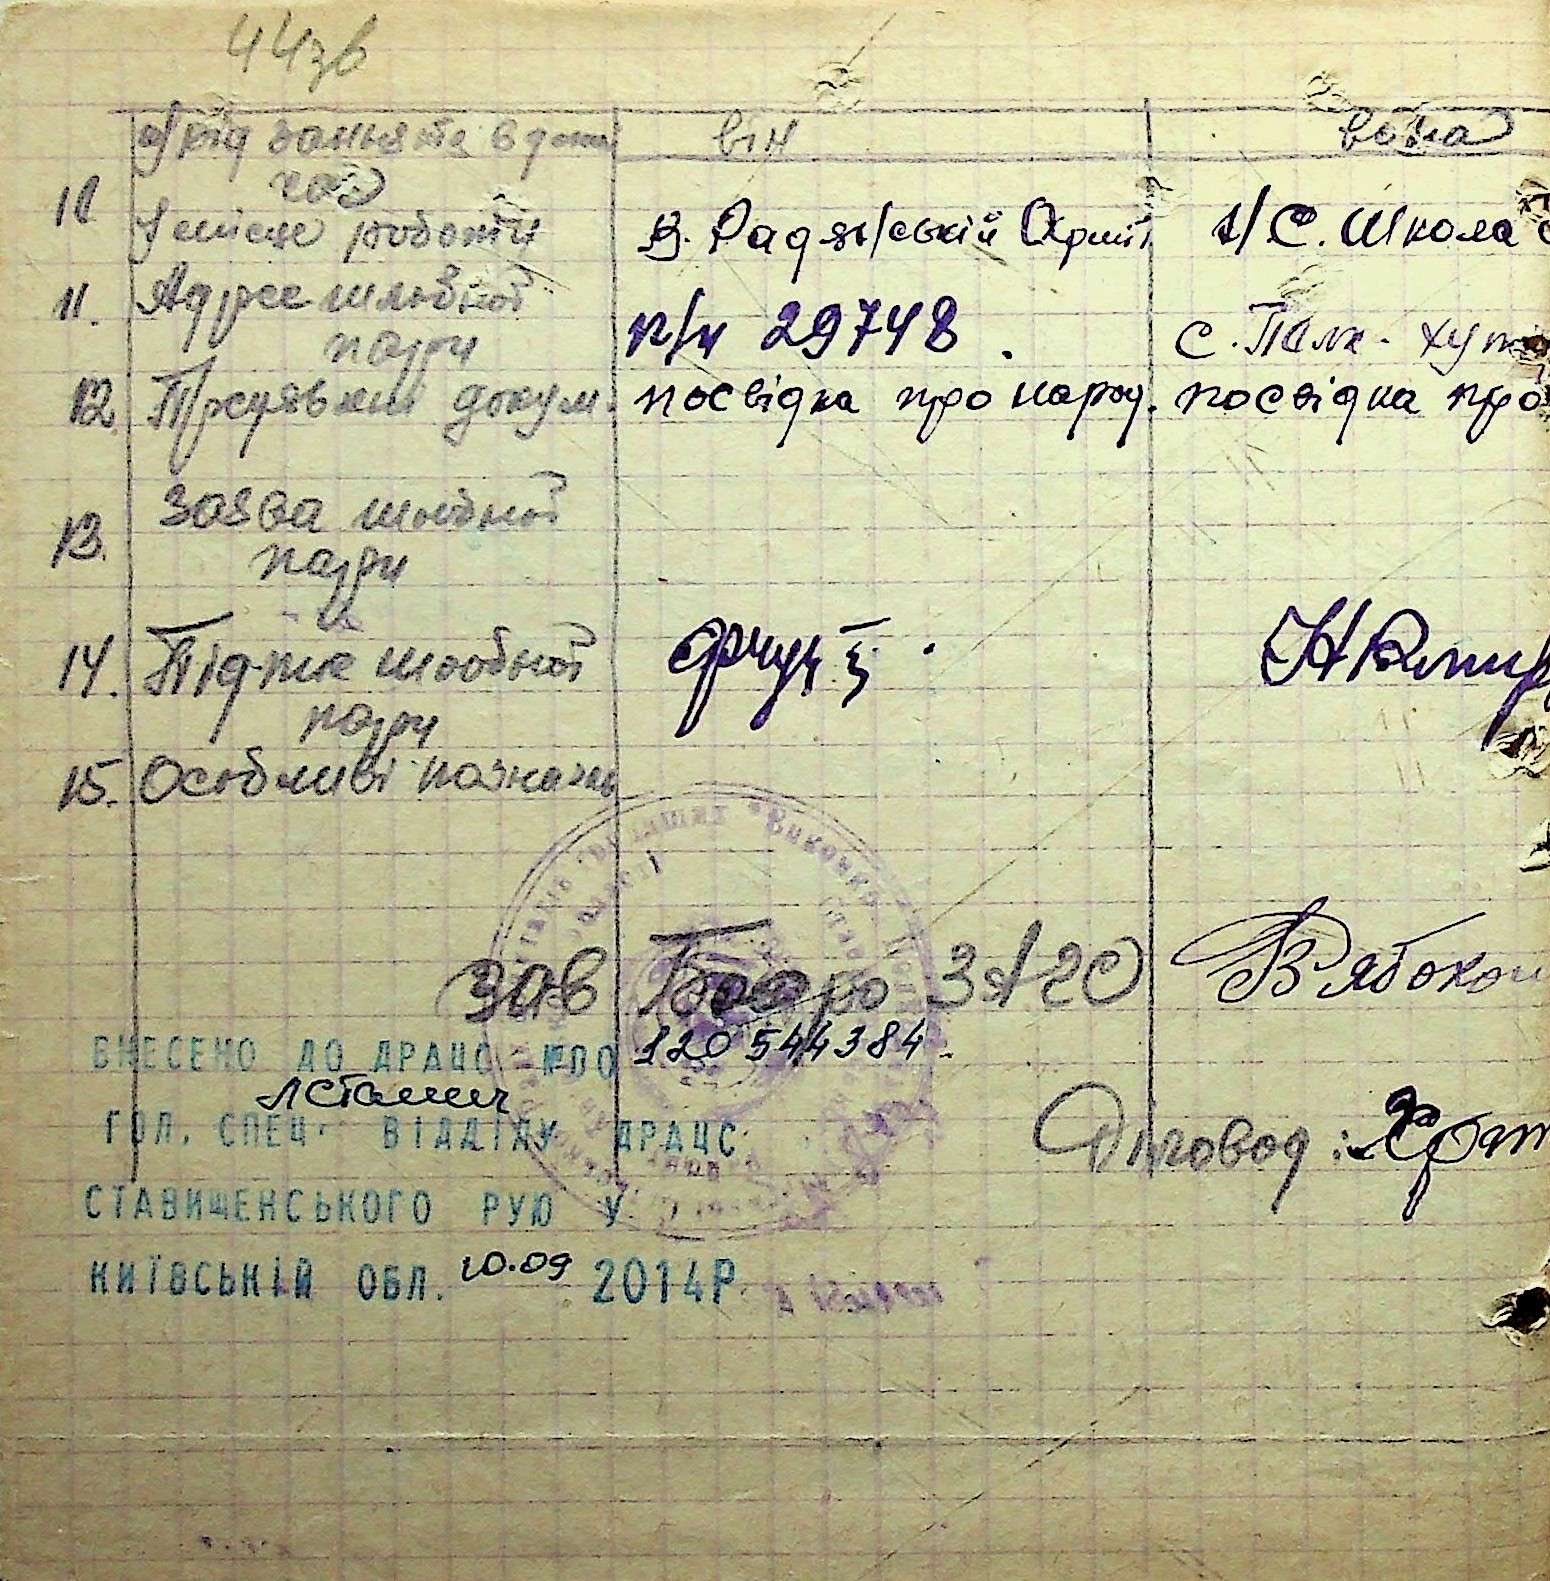 44зв
а) рід заняття в даний він вона
час
10 місце роботи В. Радянській Армії 1/ С. Школа
11. Адрес шлюбної
пари п/ч 29748. с. Полк. хут
12. Пред'явлені докум. посвідка про народ. посвідка про
13. Заява шлюбної
пари
14. Підпис шлюбної
пари
15. Особливі познач
Виконко
Зав Бюро ЗАГС В Рябокон
ВНЕСЕНО ДО ДРАЦС №ПО 120 544384.
ГОЛ. СПЕЦ. ВІДДІЛУ ДРАЦС
Діловод:
СТАВИЩЕНСЬКОГО РУЮ У
КИЇВСЬКІЙ ОБЛ. 10.09 2014Р.